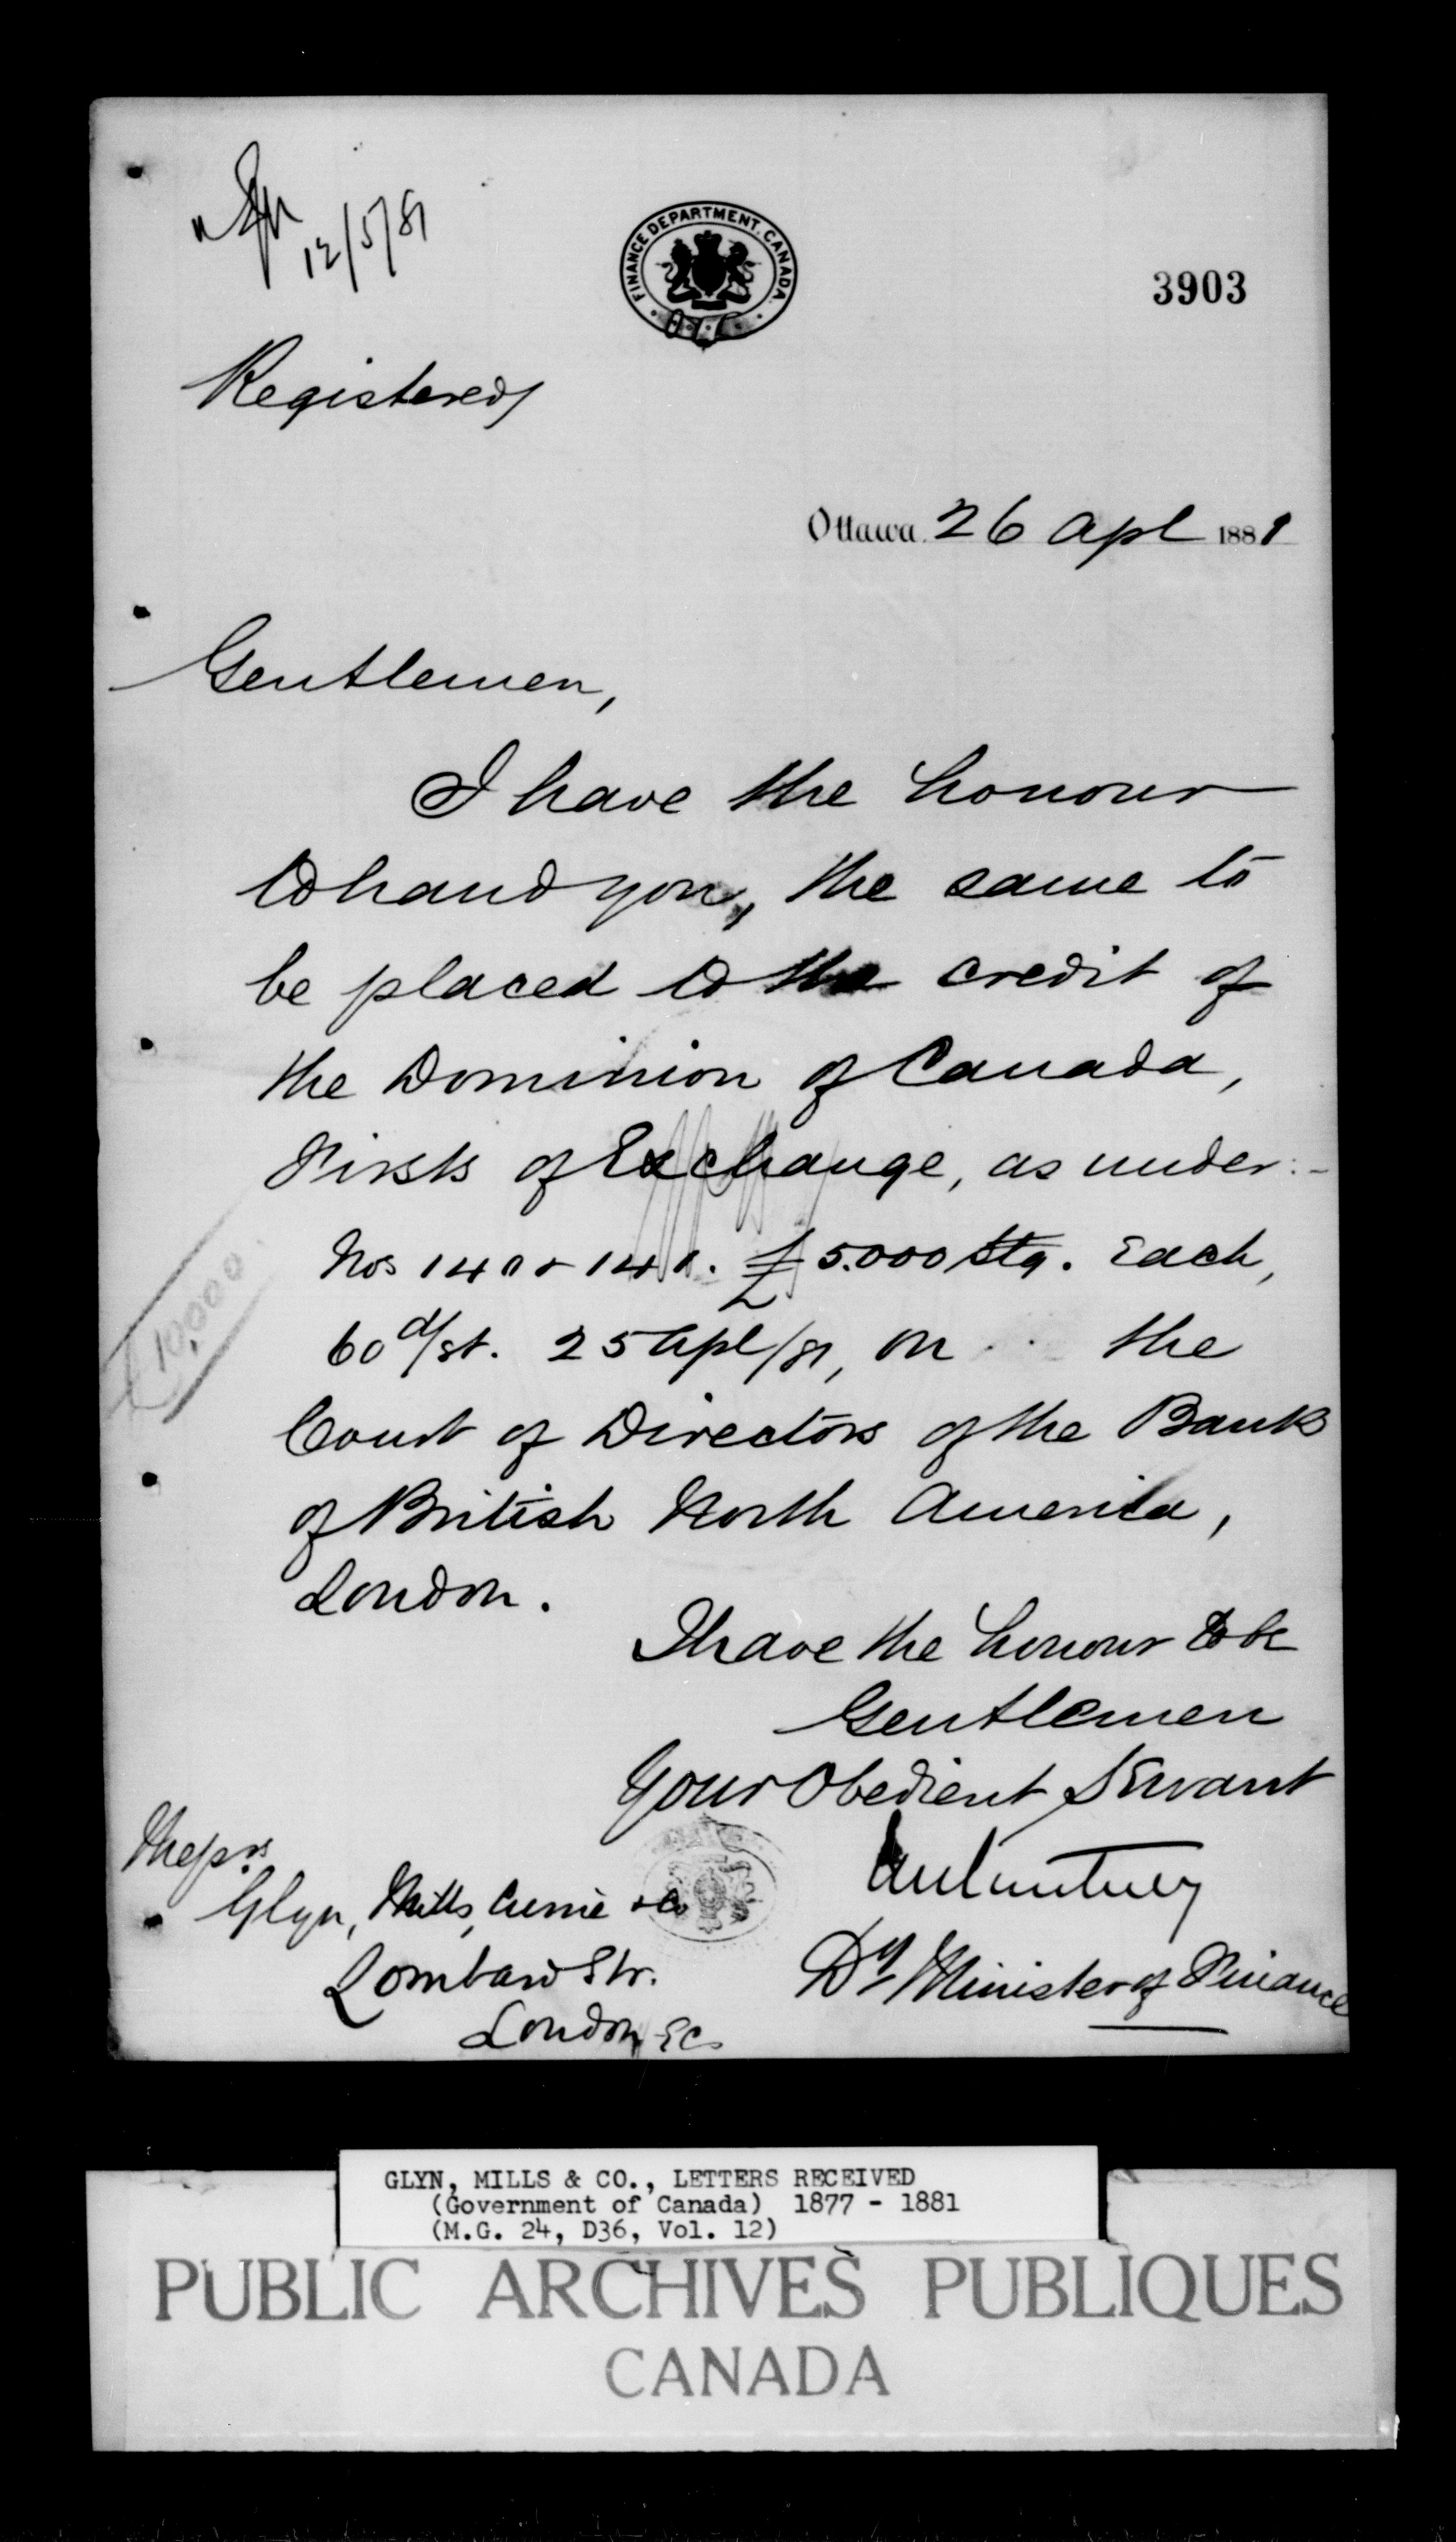 12/5/81
FINANCE DEPARTMENT, CANADA.
3903
Registered
Ottawa 26 Apl 1881
Gentlemen,
I have the honour
to hand you, the same to
be placed to the credit of
the Dominion of Canada,
Firsts of Exchange, as under:-
Nos £5.000 Stg. Each,
£10,000
60 d/st. 25 Apl/81, on the
Court of Directors of the Bank
of British North America,
London.
I have the honour to be
Gentlemen
Your Obedient Servant
Messrs
Glyn, Mills, Currie & Co
Lombard Str.
London EC
Dy Minister of Finance
GLYN, MILLS & CO., LETTERS RECEIVED
(Government of Canada) 1877 - 1881
(M.G. 24, D36, Vol. 12)
PUBLIC ARCHIVES PUBLIQUES
CANADA